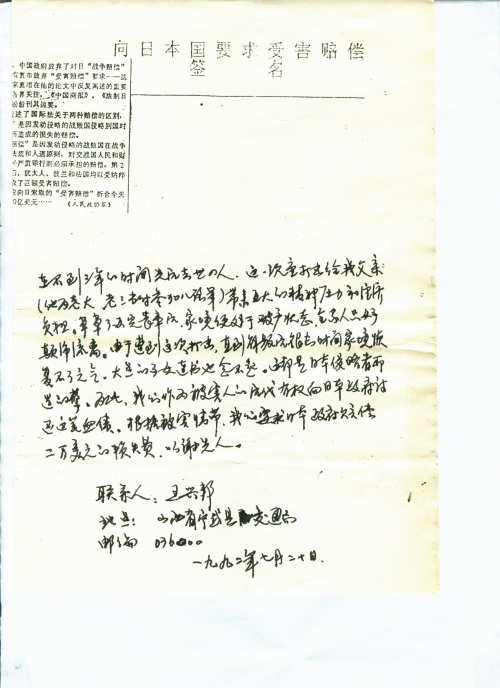 向日本国要求受害赔偿
签 名
中国政府放弃了对日“战争赔偿”
有宣布放弃“受害赔偿”要求——这
家竟币在他的论文中反复阐述的重要
各界关注。《中国商报》、《法制日
纷纷刊其摘要。
述了国际法关于两种赔偿的区别:
”是因发动侵略的战败国侵略到国时
所造成的损失的赔偿。
赔偿”是因发动侵略的战败国在战争
法规和人道原则,对交战国人民和财
严重罪行而必须承担的赔偿。第2
后,犹太人、波兰和法国均以受纳粹
取了正额受害赔偿。
应向日索取的“受害赔偿”折合今天
0亿美元…… 《人民政协报》
在不到三年的时间先后去世四人,这一次重打击给我父亲
(他为老大,老三当时参加八路军)带来巨大的精神压力和经济
负担,草草了去完丧事后,家境便处于破产状态,全家人只好
颠沛流离。由于遭到这次打击,直到解放后很长时间家境恢
复不了元气,大点的子女连书也念不起。这都是日本侵略者所
造的孽。为此,我们作为被害人的后代有权向日本政府讨
还这笔血债。根据被害情节,我们要求日本政府赔偿
二万美元的损失费,以谢先人。
联系人:王兴邦
地点:山西省宁武县交通局
邮编 036000
一九九二年七月二十日.